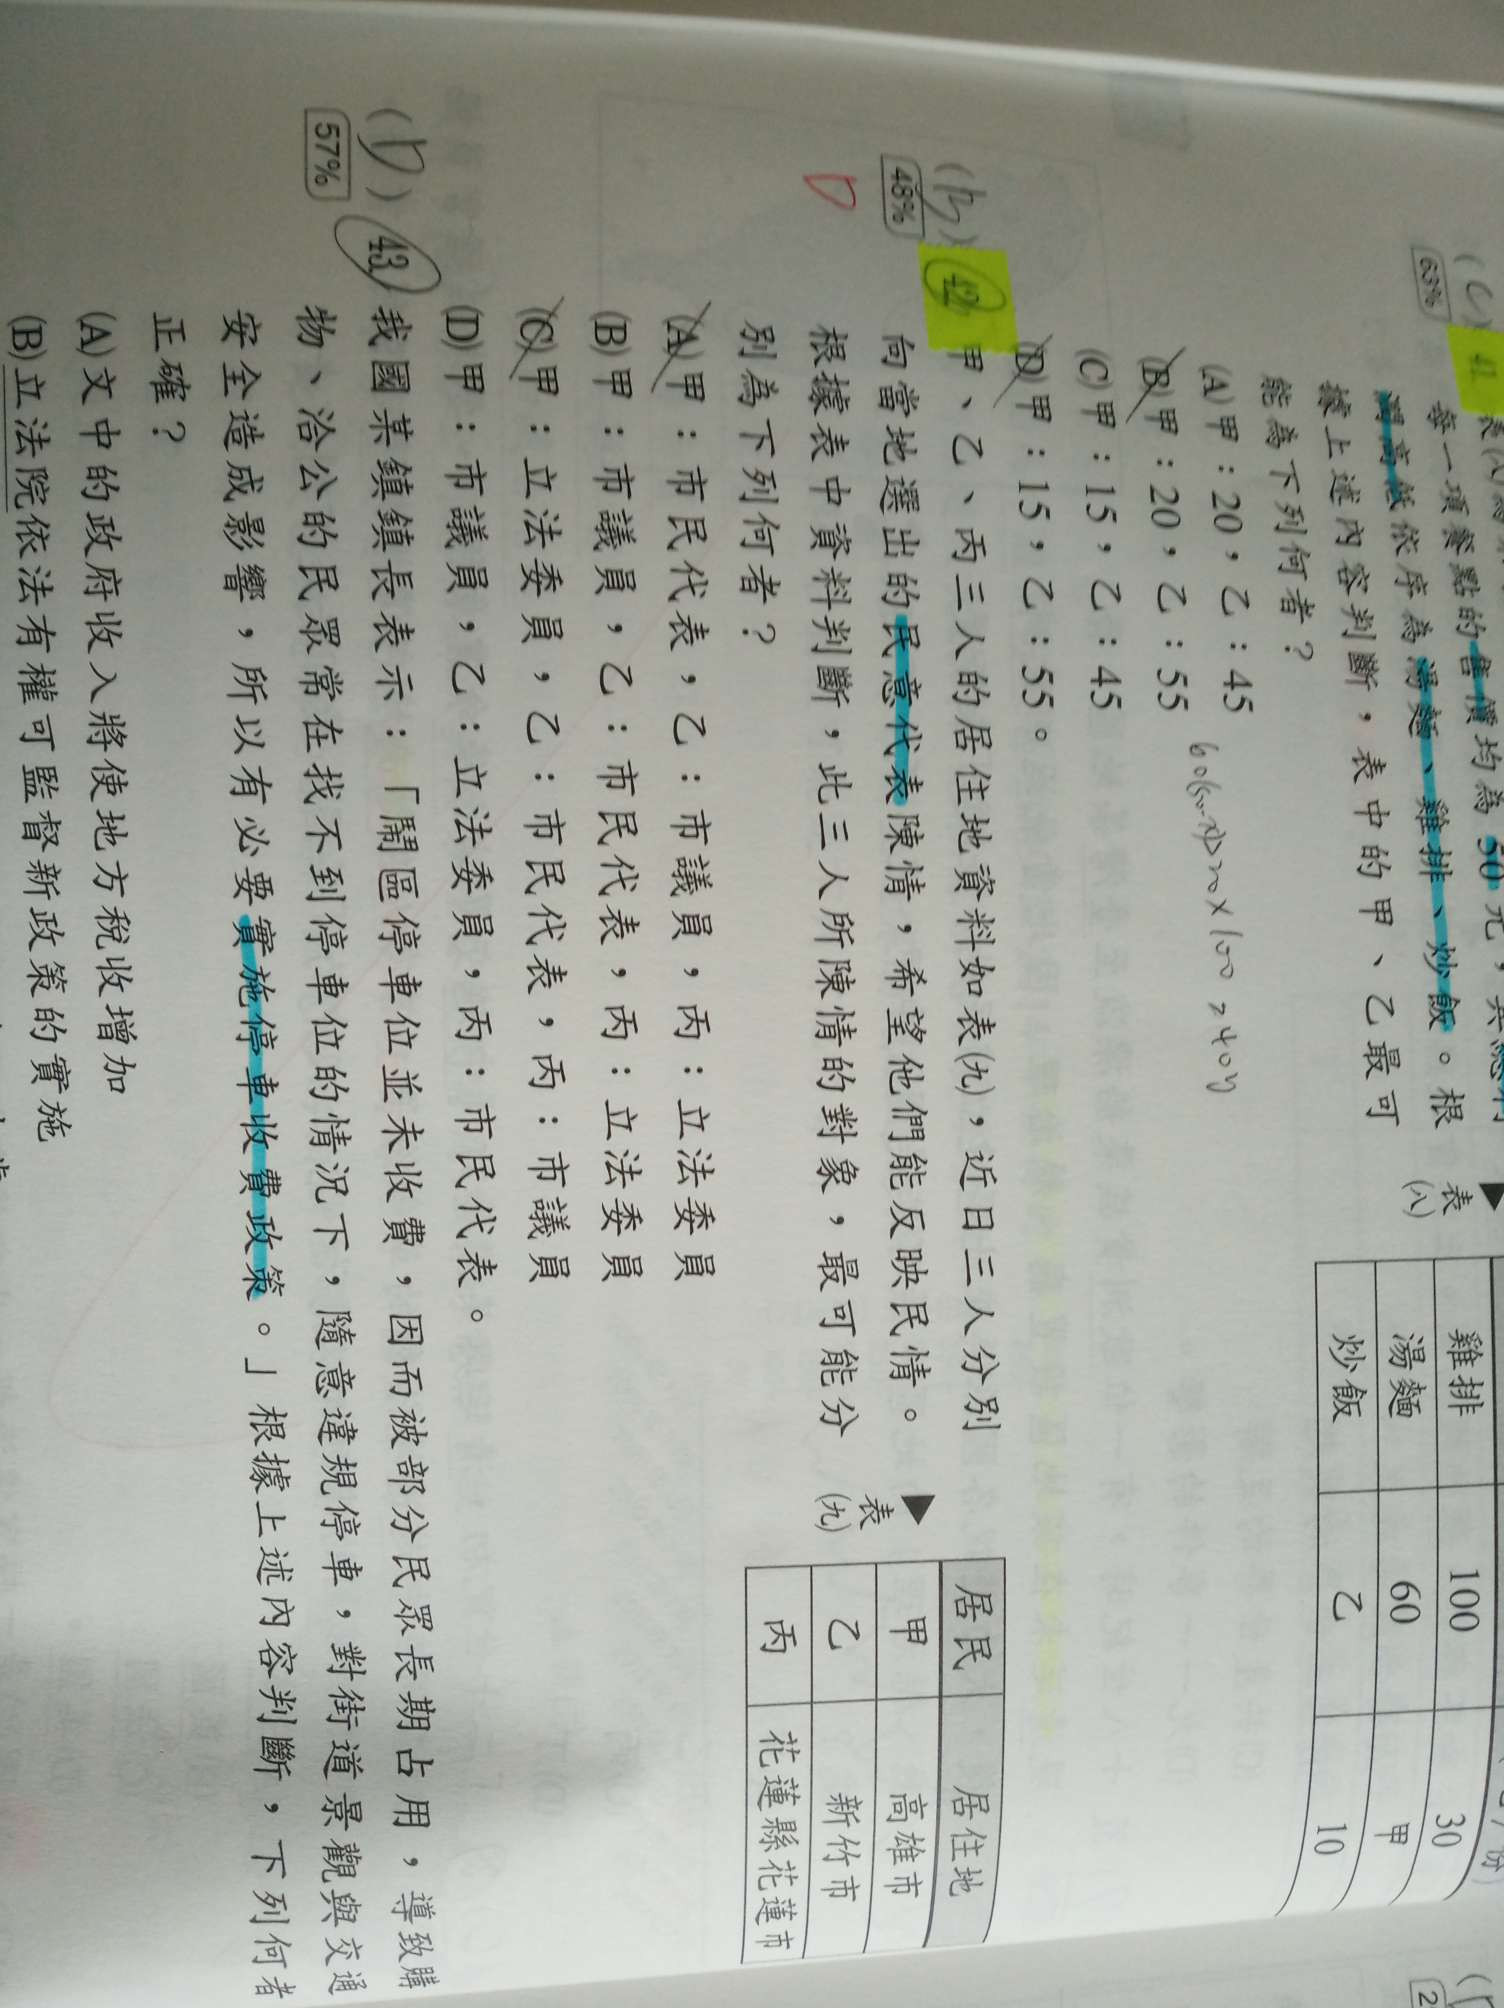 (C) 41. 表(八)為
63%
每一項餐點的售價均為50元,其總利
潤高低依序為湯麵、雞排、炒飯。根
據上述內容判斷,表中的甲、乙最可
能為下列何者?
(A)甲:20,乙:45
(B)甲:20,乙:55
(C)甲:15,乙:45
(D)甲:15,乙:55。
▲表(八)
雞排 100 30
湯麵 60 甲
炒飯 乙 10
(B) 42. 甲、乙、丙三人的居住地資料如表(九),近日三人分別
48%
D
向當地選出的民意代表陳情,希望他們能反映民情。
根據表中資料判斷,此三人所陳情的對象,最可能分
別為下列何者?
(A)甲:市民代表,乙:市議員,丙:立法委員
(B)甲:市議員,乙:市民代表,丙:立法委員
(C)甲:立法委員,乙:市民代表,丙:市議員
(D)甲:市議員,乙:立法委員,丙:市民代表。
▲表(九)
居民 居住地
甲 高雄市
乙 新竹市
丙 花蓮縣花蓮市
(D) 43. 我國某鎮鎮長表示:「鬧區停車位並未收費,因而被部分民眾長期占用,導致購
57%
物、洽公的民眾常在找不到停車位的情況下,隨意違規停車,對街道景觀與交通
安全造成影響,所以有必要實施停車收費政策。」根據上述內容判斷,下列何者
正確?
(A)文中的政府收入將使地方稅收增加
(B)立法院依法有權可監督新政策的實施